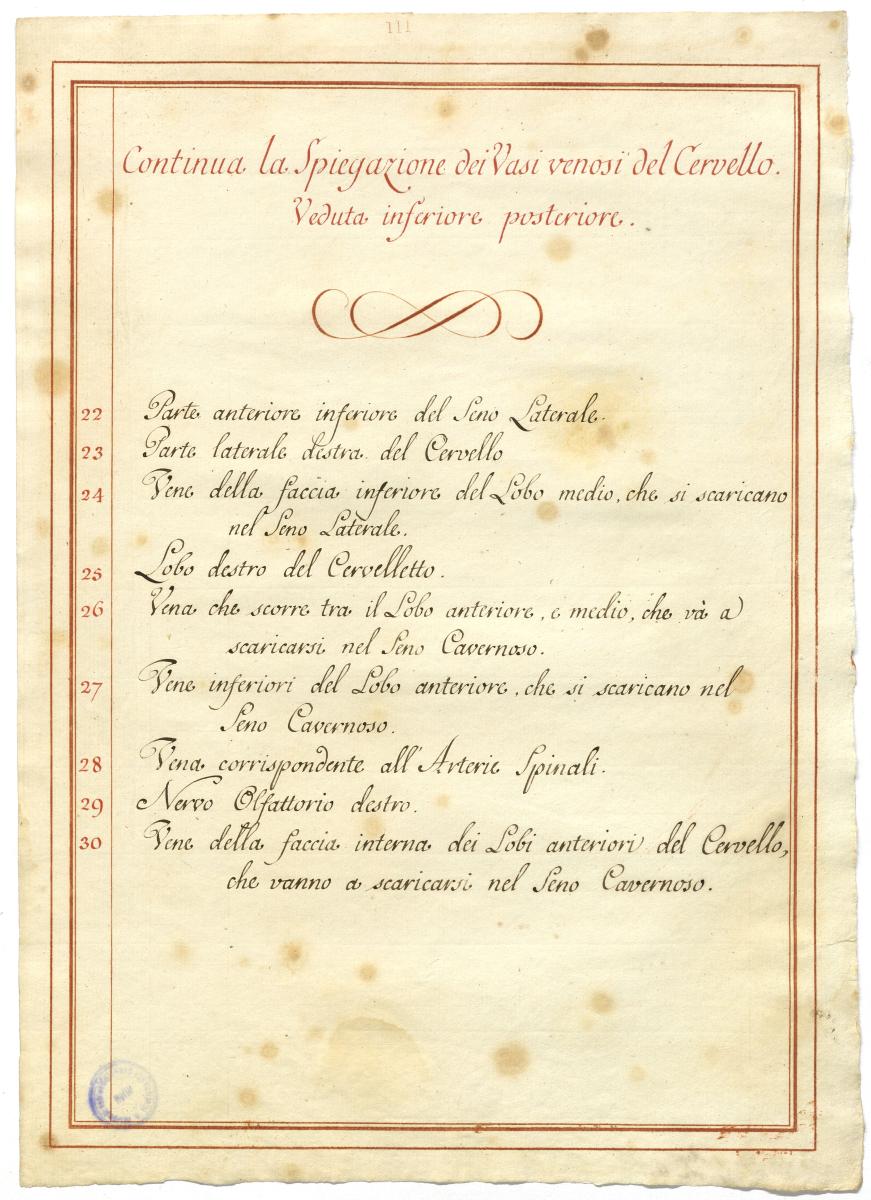 111
Continua la Spiegazione dei Vasi venosi del Cervello.
Veduta inferiore posteriore.
22 Parte anteriore inferiore del Seno Laterale.
23 Parte laterale destra del Cervello
24 Vene della faccia inferiore del Lobo medio, che si scaricano
nel Seno Laterale.
25 Lobo destro del Cervelletto.
26 Vena che scorre tra il Lobo anteriore, e medio, che và a
scaricarsi nel Seno Cavernoso.
27 Vene inferiori del Lobo anteriore, che si scaricano nel
Seno Cavernoso.
28 Vena corrispondente all'Arterie Spinali.
29 Nervo Olfattorio destro.
30 Vene della faccia interna dei Lobi anteriori del Cervello,
che vanno a scaricarsi nel Seno Cavernoso.